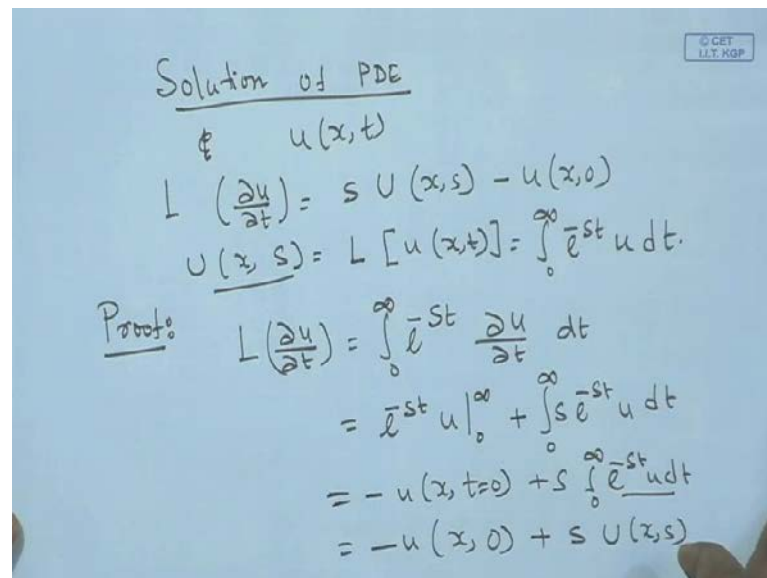 © CET
I.I.T. KGP
Solution of PDE
u(x,t)
L (∂u/∂t) = s U(x,s) - u(x,0)
U(x, s) = L [u(x,t)] = ∫₀^∞ e^-st u dt.
Proof: L(∂u/∂t) = ∫₀^∞ e^-st ∂u/∂t dt
= e^-st u|₀^∞ + ∫₀^∞ s e^-st u dt
= - u(x, t=0) + s ∫₀^∞ e^-st u dt
= - u(x, 0) + s U(x,s)